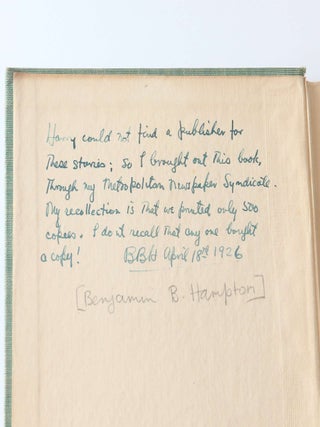 Harry could not find a publisher for
These stories; So I brought out This book,
Through my Metropolitan Newspaper Syndicate.
My recollection is That we printed only 500
copies. I do not recall that any one bought
a copy! BBH April 18th 1926
[Benjamin B. Hampton]